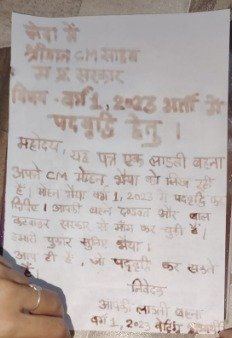 सेवा में
श्रीमान CM साहब
म.प्र. सरकार
विषय - वर्ग 1, 2023 भर्ती में
पदवृद्धि हेतु ।
महोदय, यह पत्र एक लाडली बहना
अपने CM मोहन भैया को लिख रही
है, मोहन भैया वर्ग 1, 2023 में पदवृद्धि कर
दिजिए । आपकी बहन दण्डवत और बाल
करवाकर सरकार से मांग कर चुकी है ।
हमारी पुकार सुनिए भैया ।
आप ही है, जो पदवृद्धि कर सकते
है।
निवेदक
आपकी लाडली बहना
वर्ग 1, 2023 वेटिंग